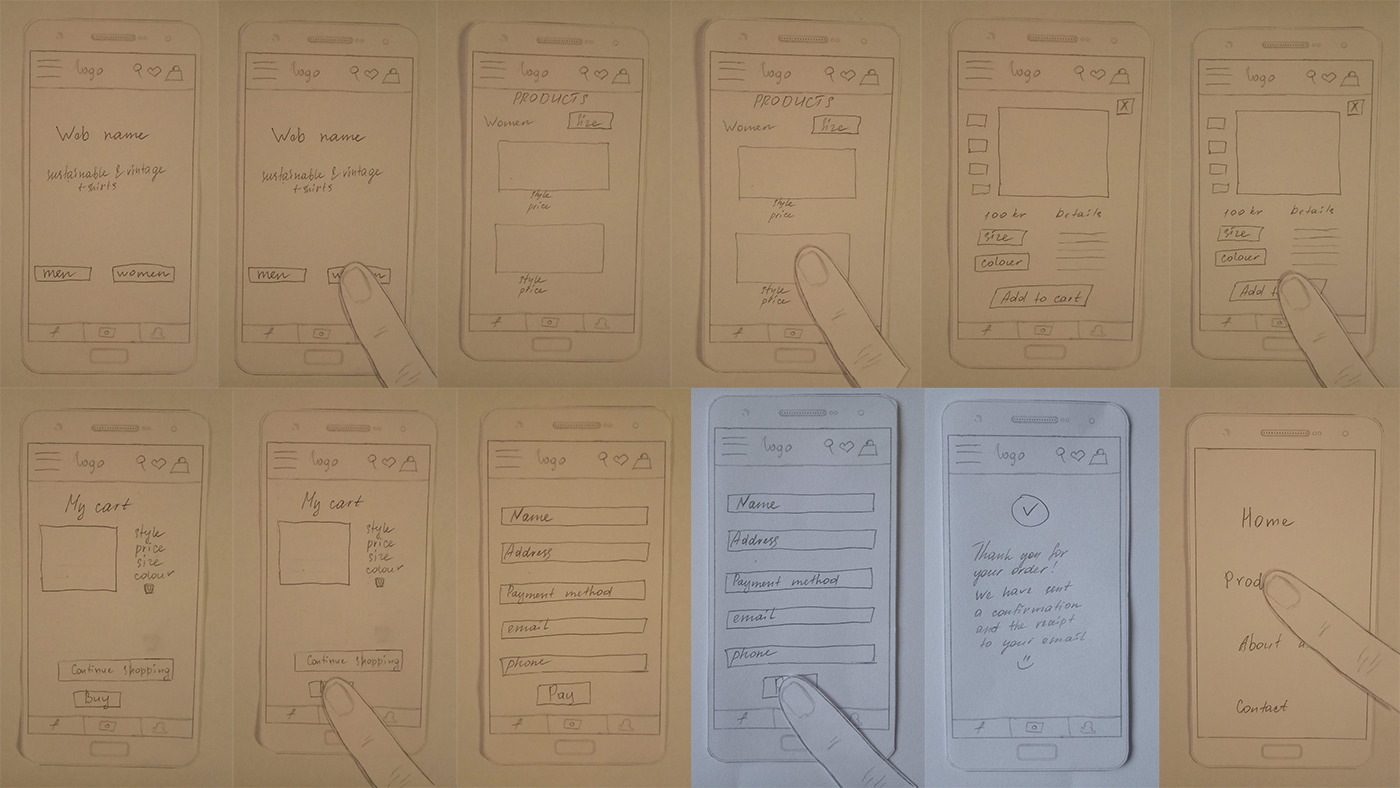 logo
Web name
sustainable & vintage
t-shirts
men
women
f
logo
Web name
sustainable & vintage
t-shirts
men
f
logo
PRODUCTS
Women
Size
style
price
style
price
f
logo
PRODUCTS
Women
Size
style
price
style
price
f
logo
X
100 kr
Details
size
colour
Add to cart
f
logo
X
100 kr
Details
size
colour
Add t
f
logo
My cart
style
price
size
colour
Continue shopping
Buy
f
logo
My cart
style
price
size
colour
Continue shopping
f
logo
Name
Address
Payment method
email
phone
Pay
f
logo
Name
Address
Payment method
email
phone
f
logo
Thank you for
your order!
We have sent
a confirmation
and the receipt
to your email
f
Home
Prod
About
Contact